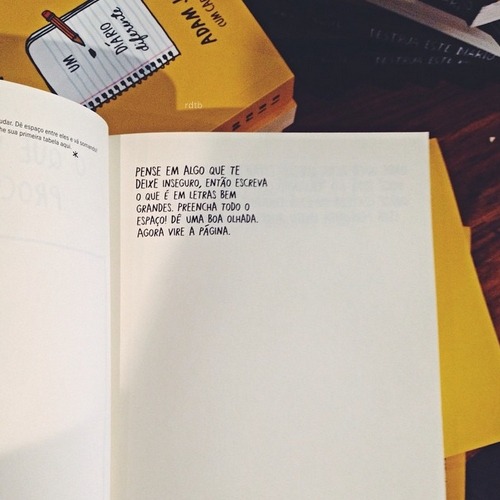 UM
DIÁRIO
diferente
ADAM J
COM CA
rdtb
DESTRUA ESTE DIÁRIO
DESTRUA ESTE
udar. Dê espaço entre eles e vá somando!
he sua primeira tabela aqui.
PENSE EM ALGO QUE TE
DEIXE INSEGURO, ENTÃO ESCREVA
O QUE É EM LETRAS BEM
GRANDES. PREENCHA TODO O
ESPAÇO! DÊ UMA BOA OLHADA.
AGORA VIRE A PÁGINA.